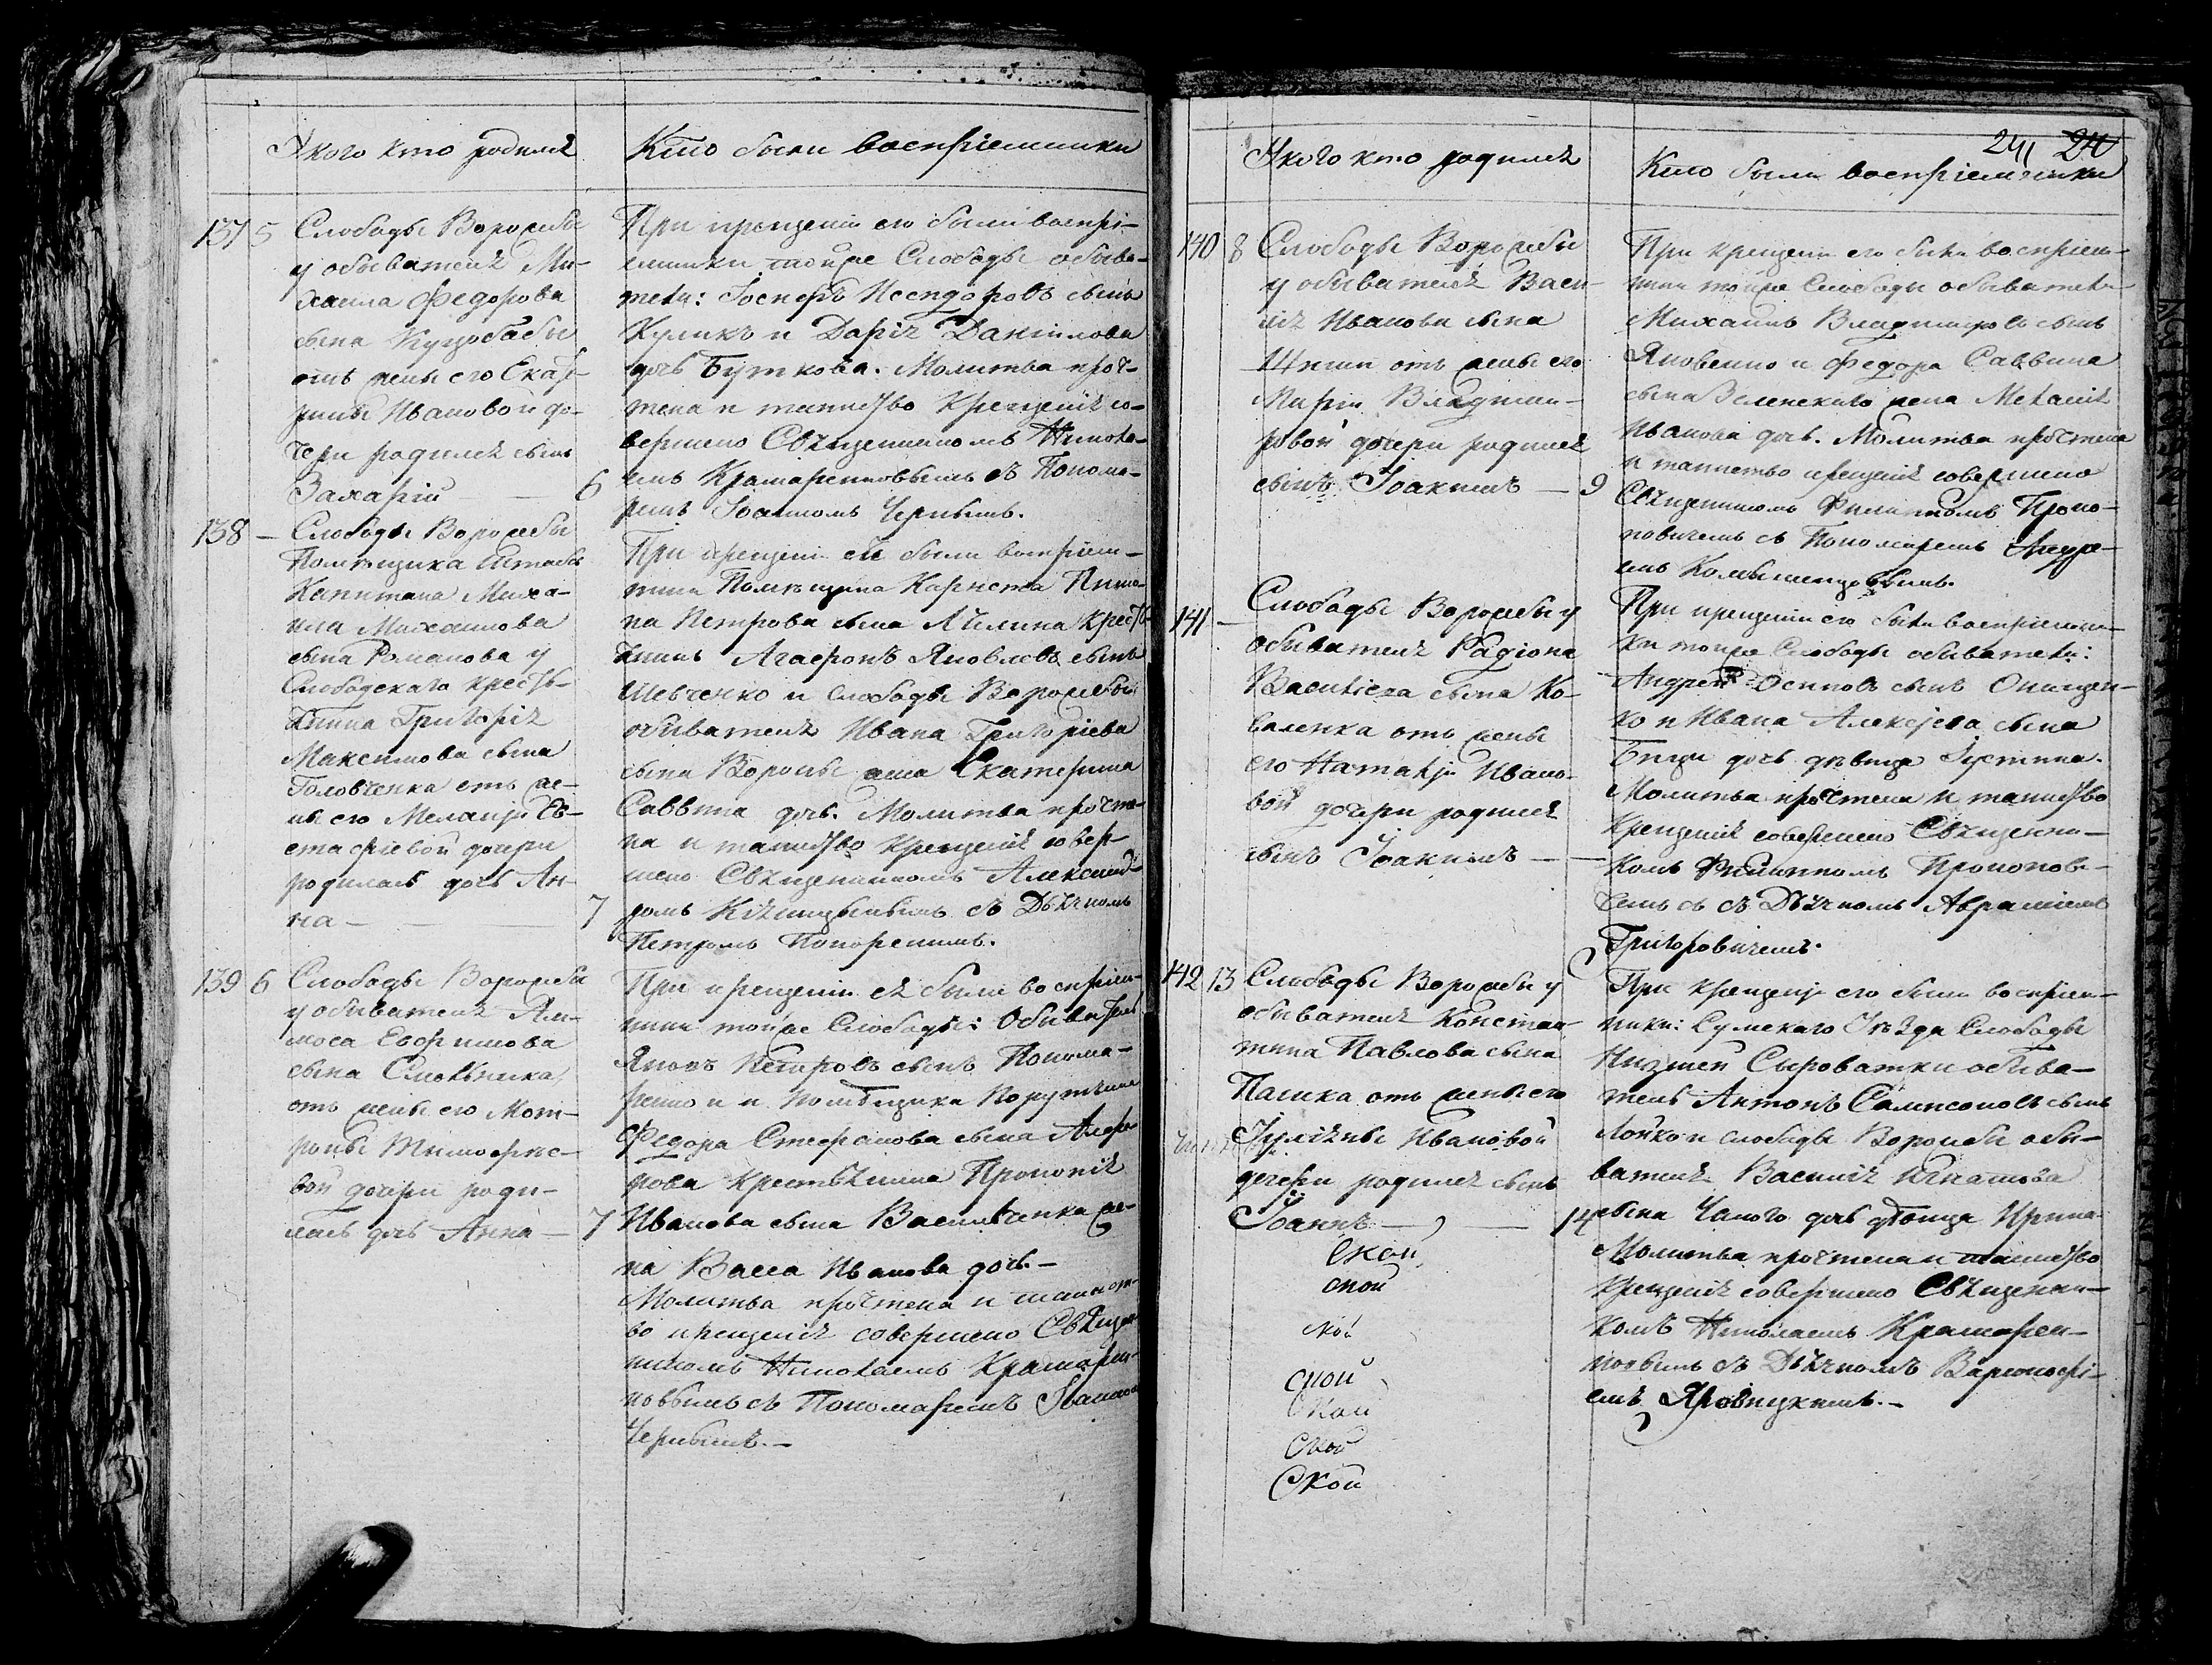 У кого кто родился
Кто были воспріемники
137 5 Слободы Ворожбы
у обывателя Ми-
хаила Федорова
сына Куцобабы
отъ жены его Екате-
рины Ивановой до-
чери родился сынъ
Захарій — 6
При крещеніи его были воспрі-
емники тойже Слободы обыва-
тели: Іосифъ
Куликъ и Дарія Даніилова
дочь Буткова. Молитва проч-
тена и таинство Крещенія со-
вершено Священникомъ Никола-
емъ Крамаренковымъ съ Понома-
ремъ Іоанномъ Чернымъ.
138 — Слободы Ворожбы
Помѣщика Штабсъ
Капитана Миха-
ила Михаилова
сына Романова у
Слободскаго кресть-
янина Григорія
Максимова сына
Головченка отъ же-
ны его Меланіи Ев-
стафіевой дочери
родилась дочь Ан-
на — 7
При крещеніи ей были воспріем-
ники Помѣщика Карнета
на Петрова сына крестья-
нинъ Агафонъ Яковлевъ сынъ
Шевченко и Слободы Ворожбы
обывателя Ивана Григоріева
сына Вороны жена Екатерина
Саввина дочь. Молитва прочте-
на и таинство Крещенія совер-
шено Священникомъ Александ-
ромъ съ Дьячкомъ
Петромъ
139 6 Слободы Ворожбы
у обывателя Ям-
моса Евфимова
сына
отъ жены его Мот-
роны Тимофее-
вой дочери роди-
лась дочь Анна — 7
При крещеніи ея были воспріем-
ники тойже Слободы: Обыватель
Яковъ Петровъ сынъ Понома-
ренко и Помѣщика Поручика
Федора Стефанова сына Алфе-
рова Крестьянина Прокопія
Иванова сына Васильченка же-
на Васса Иванова дочь. —
Молитва прочтена и таинст-
во крещенія совершено Священ-
никомъ Николаемъ Крамарен-
ковымъ съ Пономаремъ Іоанномъ
Чернымъ. —
241
У кого кто родился
Кто были воспріемники
140 8 Слободы Ворожбы
у обывателя Васи-
лія Иванова сына
отъ жены его
Маріи Владими-
ровой дочери родился
сынъ Іоакимъ — 9
При крещеніи его были воспріем-
ники тойже Слободы обыватели
Михаилъ Владимировъ сынъ
Яковенко и Федора Саввина
сына Зеленскаго жена Меланія
Иванова дочь. Молитва прочтена
и таинство крещенія совершено
Священникомъ Филиппомъ Проко-
повичемъ съ Пономаремъ Андре-
емъ
141 — Слободы Ворожбы у
обывателя Радіона
Васильева сына Ко-
валенка отъ жены
его Наталіи Ивано-
вой дочери родился
сынъ Іоакимъ — —
При крещеніи его были воспріемни-
ки тойже Слободы обыватели:
Андрей Осиповъ сынъ Онищен-
ко и Ивана Алексіева сына
дочь дѣвица Іустина.
Молитва прочтена и таинство
Крещенія совершено Священни-
комъ Филиппомъ Прокопови-
чемъ съ съ Дьячкомъ Авраміемъ
Григоровичемъ.
142 13 Слободы Ворожбы у
обывателя Констан-
тина Павлова сына
отъ жены его
Іуліяны Ивановой
дочери родился сынъ
Іоаннъ — 14
ской
ской
ской
ской
ской
ской
Ской
При крещеніи его были воспріем-
ники: Сумскаго Уѣзда Слободы
Низшей Сыроватки обыва-
тель Антонъ Самсоновъ сынъ
Лойко и слободы Ворожбы обы-
вателя Василія Игнатова
сына дочь дѣвица Ирина
Молитва прочтена и таинство
Крещенія совершено Священни-
комъ Николаемъ Крамарен-
ковымъ съ Дьячкомъ Варфоломе-
емъ Яровицкимъ. —